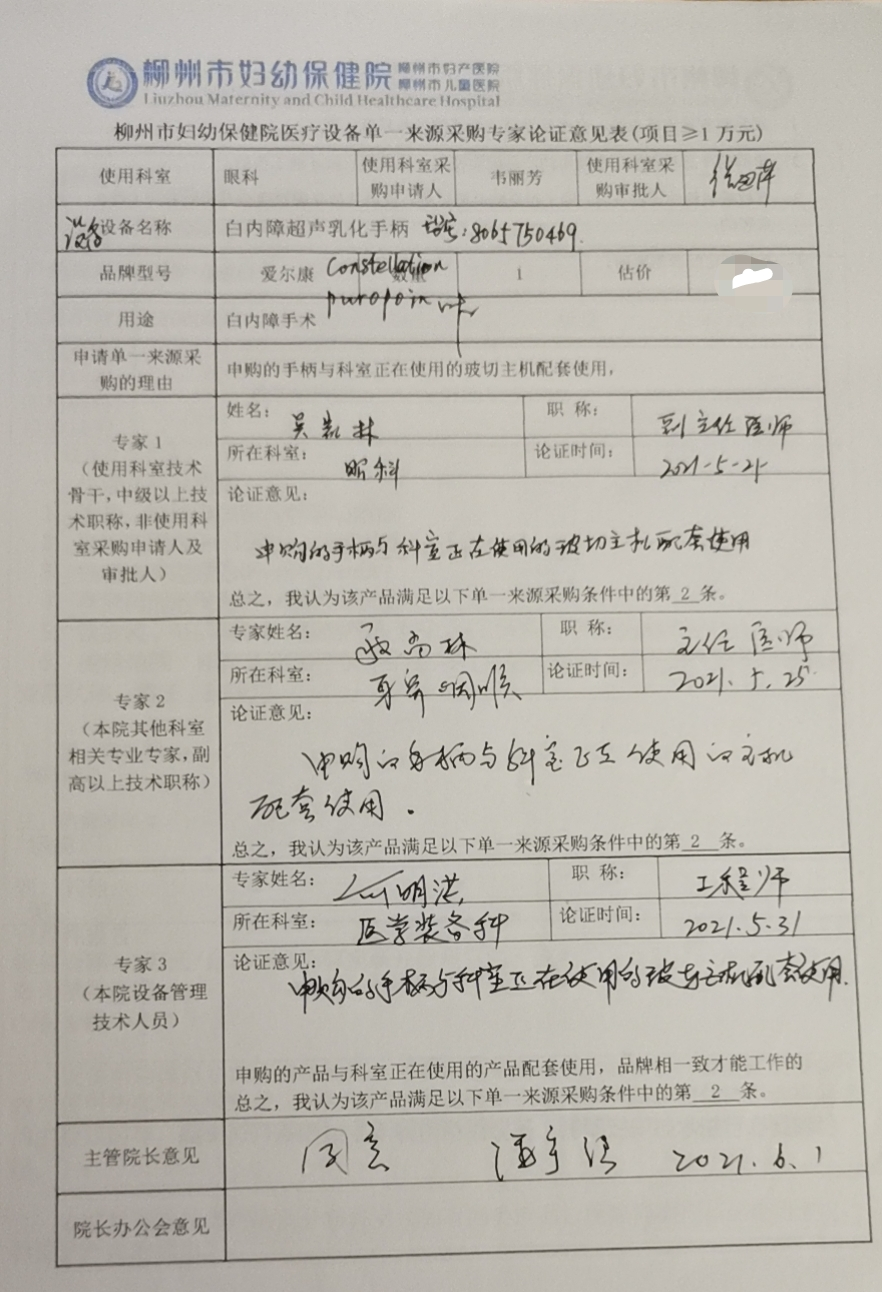 柳州市妇幼保健院 柳州市妇产医院
柳州市儿童医院
Liuzhou Maternity and Child Healthcare Hospital
柳州市妇幼保健院医疗设备单一来源采购专家论证意见表(项目≥1万元)
使用科室 眼科 使用科室采购申请人 韦丽芳 使用科室采购审批人
设备 设备名称 白内障超声乳化手柄 型号:8065750469
品牌型号 爱尔康 Constellation 数量 1 估价
用途 白内障手术
申请单一来源采购的理由 申购的手柄与科室正在使用的玻切主机配套使用,
专家1
(使用科室技术骨干,中级以上技术职称,非使用科室采购申请人及审批人)
姓名: 吴凯林 职 称: 副主任医师
所在科室: 眼科 论证时间: 2021-5-21
论证意见:
申购的手柄与科室正在使用的玻切主机配套使用
总之,我认为该产品满足以下单一来源采购条件中的第 2 条。
专家2
(本院其他科室相关专业专家,副高以上技术职称)
专家姓名: 职 称: 主任医师
所在科室: 耳鼻咽喉 论证时间: 2021.5.25
论证意见:
申购的手柄与科室正在使用的主机
配套使用.
总之,我认为该产品满足以下单一来源采购条件中的第 2 条。
专家3
(本院设备管理技术人员)
专家姓名: 何明洪 职 称: 工程师
所在科室: 医学装备科 论证时间: 2021.5.31
论证意见:
申购的手柄与科室正在使用的玻切主机配套使用.
申购的产品与科室正在使用的产品配套使用,品牌相一致才能工作的
总之,我认为该产品满足以下单一来源采购条件中的第 2 条。
主管院长意见 同意 2021.6.1
院长办公会意见